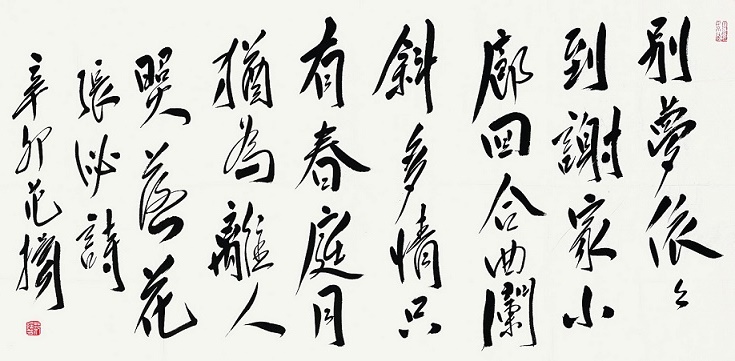 别夢依々
到謝家小
廊回合曲闌
斜多情只
有春庭月
猶為離人
照落花
張泌詩
辛卯范